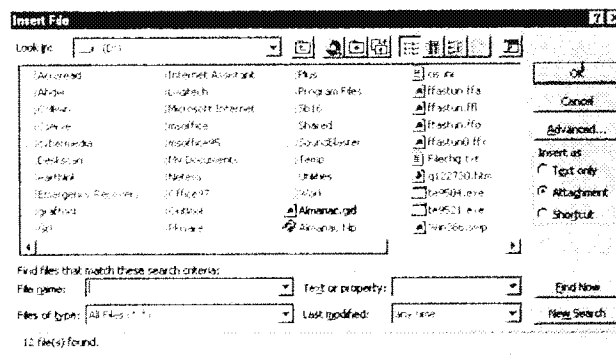 Insert File
Look in: (D:)
Acroread
Collwin
Cserve
Deskscan
Earthlink
Emergency Recovery
Internet Assistant
Logitech
Microsoft Internet
msoffice
msoffice95
My Documents
Office97
Plus
Program Files
Sb16
Shared
SoundBlaster
Temp
Utilities
Work
Almanac.gid
Almanac.hlp
cis.ini
ffastun.ffa
ffastun.ffl
ffastun.ffo
ffastun0.ffx
Filechg.txt
q122730.htm
te9504.exe
te9521.exe
Win386.swp
OK
Cancel
Advanced...
Insert as
Text only
Attachment
Shortcut
Find files that match these search criteria:
File name:
Text or property:
Find Now
Files of type: All Files (*.*)
Last modified: any time
New Search
12 file(s) found.